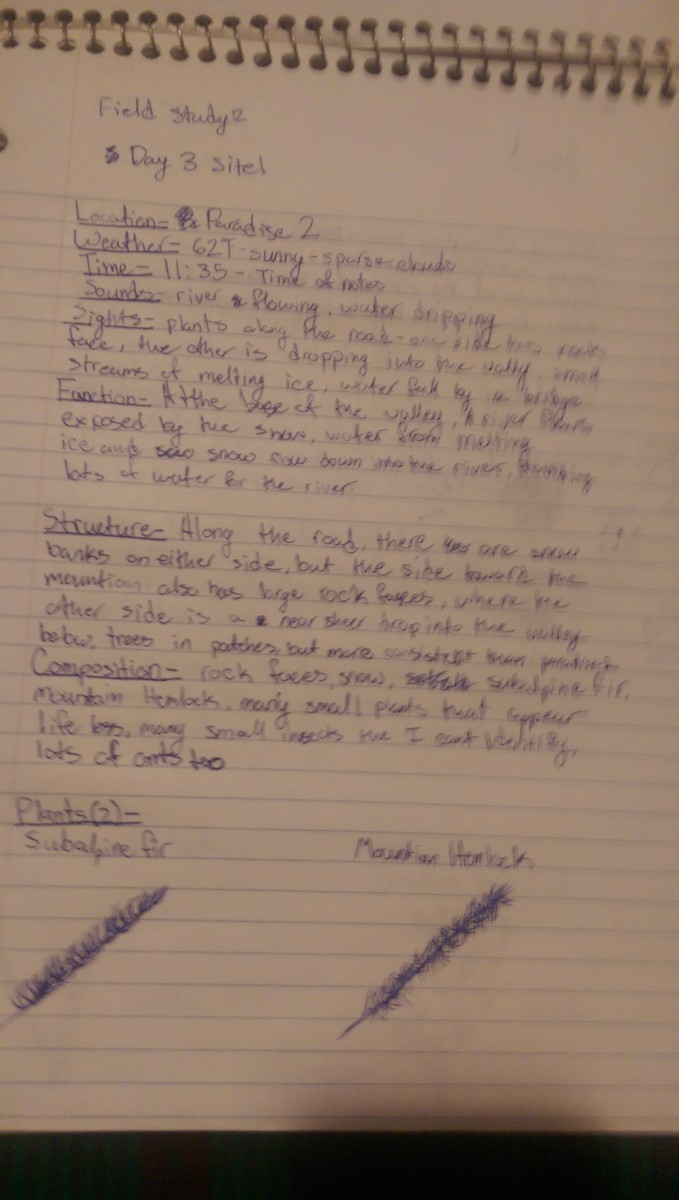 Field Study 2
Day 3 Site 1
Location- Paradise 2
Weather- 62F-sunny-sparse clouds
Time- 11:35 - Time of notes
Sounds- river flowing, water dripping
Sights- plants along the road- one side has rock
face, the other is dropping into the vally, small
streams of melting ice, water fall by a bridge
Function- At the base of the valley, A river
exposed by the snow, water from melting
ice and snow flow down into the river,
lots of water for the river.
Structure- Along the road, there are snow
banks on either side, but the side toward the
mountian also has large rock faces, where the
other side is a near sheer drop into the valley
below. trees in patches, but more consistent than
Composition- rock faces, snow, subalpine fir,
Mountain Hemlock, many small plants that appear
life less, many small insects the I cant identify,
lots of ants too
Plants(2)-
Subalpine fir
Mountian Hemlock